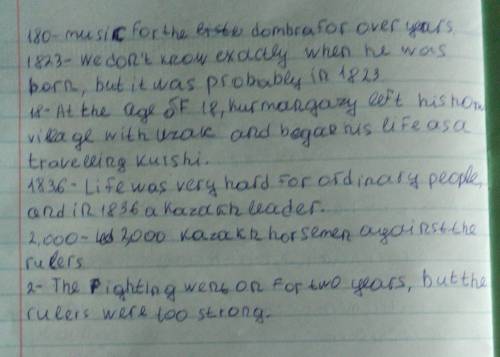 180- music for the dombra for over years
1823- we don't know exactly when he was
born, but it was probably in 1823
18- At the age of 18, kurmangazy left his hom
village with Uzak and began his life as a
travelling kuishi.
1836- Life was very hard for ordinary people,
and in 1836 a kazakh leader.
2,000- led 2,000 kazakh horsemen against the
rulers
2- The Fighting went on for two years, but the
rulers were too strong.